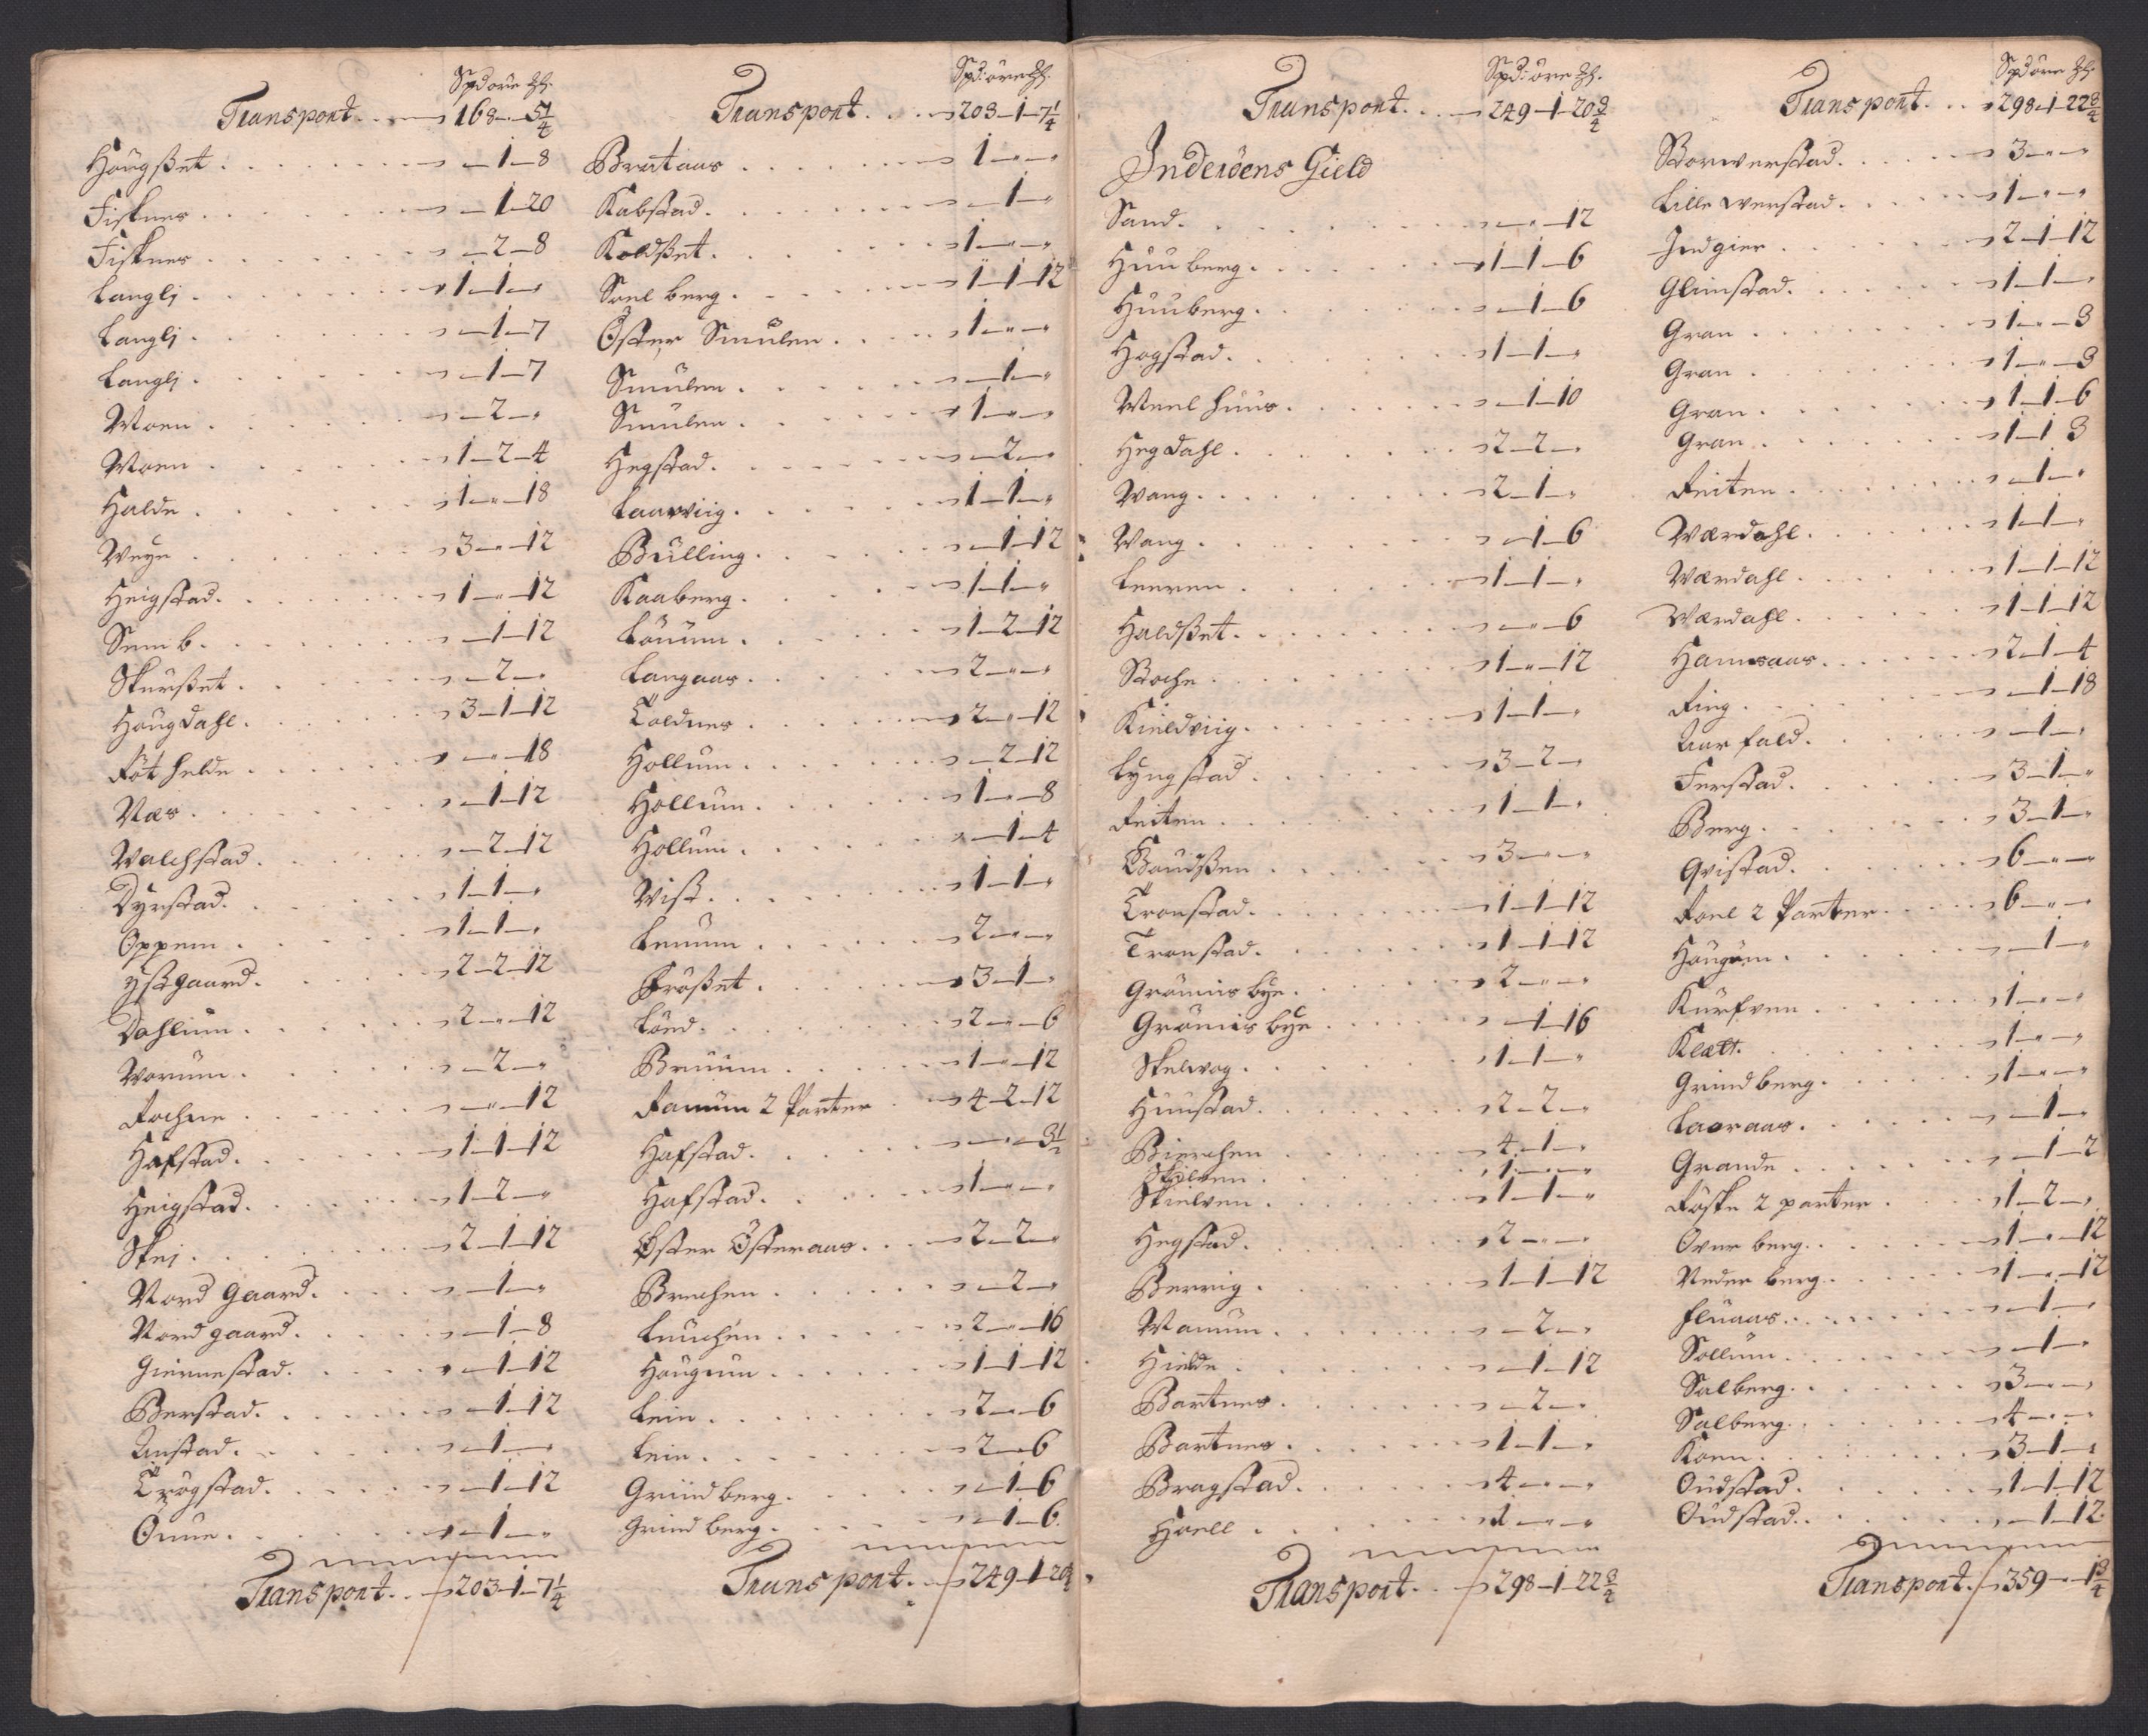 Spd öre
Transport. . 168 - 5 1/4
Höugßet . - 1 - 8
Fisknes . - 1 - 20
Fisknes . - 2 - 8
Langlj . 1 - 1 - "
Langlj . - 1 - 7
Langlj . - 1 - 7
Moen . - 2 - "
Moen . 1 - 2 - 4
Halde . 1 - " - 18
Weye . 3 - " - 12
Heigstad . 1 - " - 12
Semb . - 1 - 12
Skurßet . - 2 - "
Höugdahl . 3 - 1 - 12
Röthelde . - " - 18
Næs . - 1 - 12
Walchstad . - 2 - 12
Dyrstad . 1 - 1 - "
Oppem . 1 - 1 - "
Ystgaard . 2 - 2 - 12
Dahlum . 2 - " - 12
Worum . - 2 - "
Rochne . - " - 12
Hafstad . 1 - 1 - 12
Heigstad . 1 - 2 - "
Skej . 2 - 1 - 12
Nord gaard . - 1 - "
Nord gaard . - 1 - 8
Giermestad . - 1 - 12
Berstad . - 1 - 12
Unstad . - 1 - "
Trögstad . - 1 - 12
Önne . - 1 - "
Transport. . 203 - 1 - 7 1/4
Spd: öre
Transport. . 203 - 1 - 7 1/4
Brataas . 1 - " - "
Kabstad . - 1 - "
Koldßet . 1 - " - "
Soelberg . 1 - 1 - 12
Öster Smulen . 1 - " - "
Smulen . - 1 - "
Smulen . 1 - " - "
Hegstad . - 2 - "
Laarviig . 1 - 1 - "
Bulling . - 1 - 12
Kaaberg . 1 - 1 - "
Lönum . 1 - 2 - 12
Langaas . 2 - " - "
Toldnes . 2 - " - 12
Hollum . - 2 - 12
Hollum . 1 - " - 8
Hollum . - 1 - 4
Wist . 1 - 1 - "
Lennum . 2 - " - "
Frößet . 3 - 1 - "
Lönd . 2 - " - 6
Bruum . 1 - " - 12
Ramum 2 Parter . 4 - 2 - 12
Hafstad . - " - 3 1/2
Hafstad . 1 - " - "
Öster Österaas . 2 - 2 - "
Brechen . - 2 - "
Luuchen . 2 - " - 16
Höugum . 1 - 1 - 12
Lein . 2 - " - 6
Lein . 2 - " - 6
Griindberg . - 1 - 6
Grindberg . - 1 - 6
Transport. . 249 - 1 - 20 3/4
Spd: öre
Transport. . 249 - 1 - 20 3/4
Inderöens Gield
Sand . - " - 12
Huuberg . 1 - 1 - 6
Huuberg . - 1 - 6
Hogstad . 1 - 1 - "
Weelhuus . - 1 - 10
Hegdahl . 2 - 2 - "
Wang . 2 - 1 - "
Wang . - 1 - 6
Leeren . 1 - 1 - "
Haldßet . - " - 6
Stoche . 1 - " - 12
Kieldviig . 1 - 1 - "
Lyngstad . 3 - 2 - "
Reiten . 1 - 1 - "
Goudßen . 3 - " - "
Tronstad . 1 - 1 - 12
Tronstad . 1 - 1 - 12
Grönnis bye . 2 - " - "
Grönnis bye . - 1 - 16
Skelvog . 1 - 1 - "
Huustad . 2 - 2 - "
Bierchen . 4 - 1 - "
Skielven . 1 - " - "
Skielven . 1 - 1 - "
Hegstad . 2 - " - "
Berrig . 1 - 1 - 12
Wanum . - 2 - "
Hielde . - 1 - 12
Bartnes . - 2 - "
Bartnes . 1 - 1 - "
Bragstad . 4 - " - "
Hoell . 1 - " - "
Transport. . 298 - 1 - 22 3/4
Spd öre
Transport. . 298 - 1 - 22 3/4
Storwerstad . 3 - " - "
Lille werstad . 1 - " - "
Indgier . 2 - 1 - 12
Glimstad . 1 - 1 - "
Gran . 1 - " - 3
Gran . 1 - " - 3
Gran . 1 - 1 - 6
Gran . 1 - 1 3
Reiten . - 1 - "
Wærdahl . 1 - 1 - "
Wærdahl . 1 - 1 - 12
Wærdahl . 1 - 1 - 12
Hamraas . 2 - 1 - 4
Ring . - 1 - 18
Aarfald . - 1 - "
Ferstad . 3 - 1 - "
Berg . 3 - 1 - "
Qvistad . 6 - " - "
Roel 2 Parter . 6 - " - "
Höugum . - 1 - "
Kurfven . 1 - " - "
Klætt . 1 - " - "
Grindberg . 1 - " - "
Laaraas . - 1 - "
Grande . - 1 - 2
Röske 2 parter . 1 - 2 - "
Over berg . 1 - " - 12
Neder berg . 1 - " - 12
Fluaas . - 1 - "
Sollum . - 1 - "
Salberg . 3 - " - "
Salberg . 4 - " - "
Koen . 3 - 1 - "
Oudstad . 1 - 1 - 12
Oudstad . - 1 - 12
Transport. . 359 - " - 1 3/4